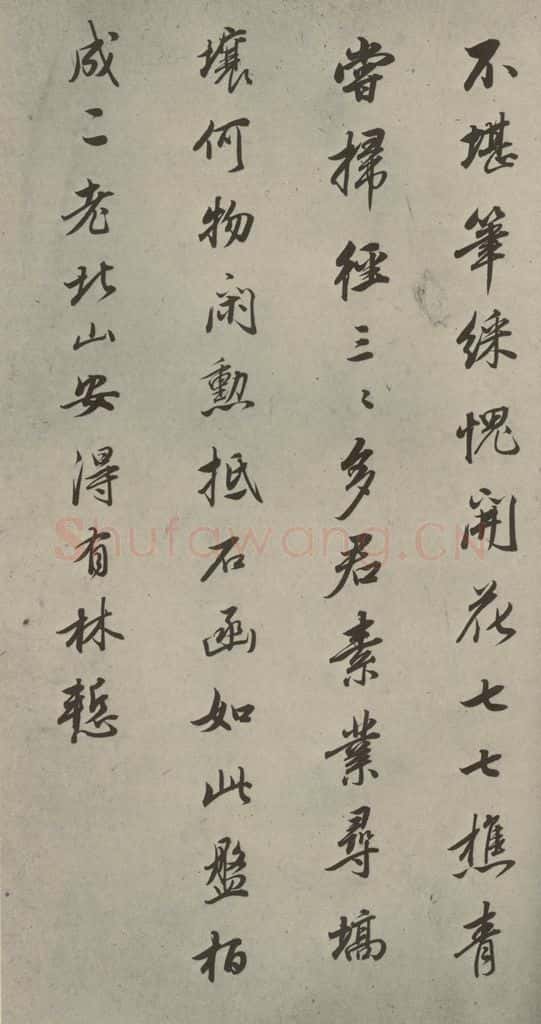 不堪筆綵愧開花七七樵青
嘗掃徑三〻多君素業尋塙
壤何物閑勳抵石函如此盤栢
成二老北山安得有林慙
Shufawang.CN